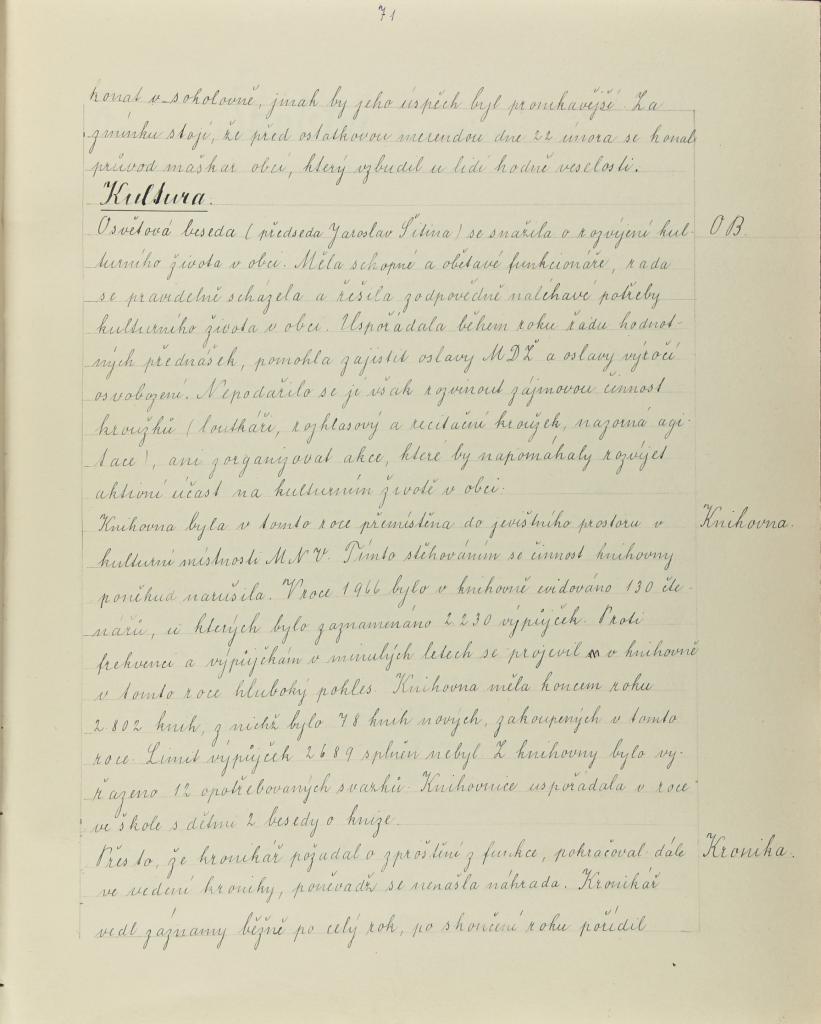 71
konat v sokolovně, jinak by jeho úspěch byl pronikavější. Za
zmínku stojí, že před ostatkovou merendou dne 22 února se konal
průvod maškar obcí, který vzbudil u lidí hodně veselosti.
Kultura.
Osvětová beseda (předseda Jaroslav Šitina) se snažila o rozvíjení kul- OB.
turního života v obci. Měla schopné a obětavé funkcionáře, rada
se pravidelně scházela a řešila zodpovědně naléhavé potřeby
kulturního života v obci. Uspořádala během roku řadu hodnot-
ných přednášek, pomohla zajistit oslavy MDŽ a oslavy výročí
osvobození. Nepodařilo se jí však rozvinout zájmovou činnost
kroužků (loutkáři, rozhlasový a recitační kroužek, nazorná agi-
tace), ani zorganizovat akce, které by napomáhaly rozvíjet
aktivní účast na kulturním životě v obci.
Knihovna byla v tomto roce přemístěna do jevištního prostoru v Knihovna.
kulturní místnosti MNV. Tímto stěhováním se činnost knihovny
poněkud narušila. V roce 1966 bylo v knihovně evidováno 130 čte-
nářů, u kterých bylo zaznamenáno 2 230 výpůjček. Proti
frekvenci a výpůjčkám v minulých letech se projevil v knihovně
v tomto roce hluboký pohles. Knihovna měla koncem roku
2 802 knih, z nichž bylo 78 knih nových, zakoupených v tomto
roce. Limit výpůjček 2689 splněn nebyl. Z knihovny bylo vy-
řazeno 12 opotřebovaných svazků. Knihovnice uspořádala v roce
ve škole s dětmi 2 besedy o knize.
Přes to, že kronikář požádal o zproštění z funkce, pokračoval dále Kronika.
ve vedení kroniky, poněvadž se nenašla náhrada. Kronikář
vedl záznamy běžně po celý rok, po skončení roku pořídil